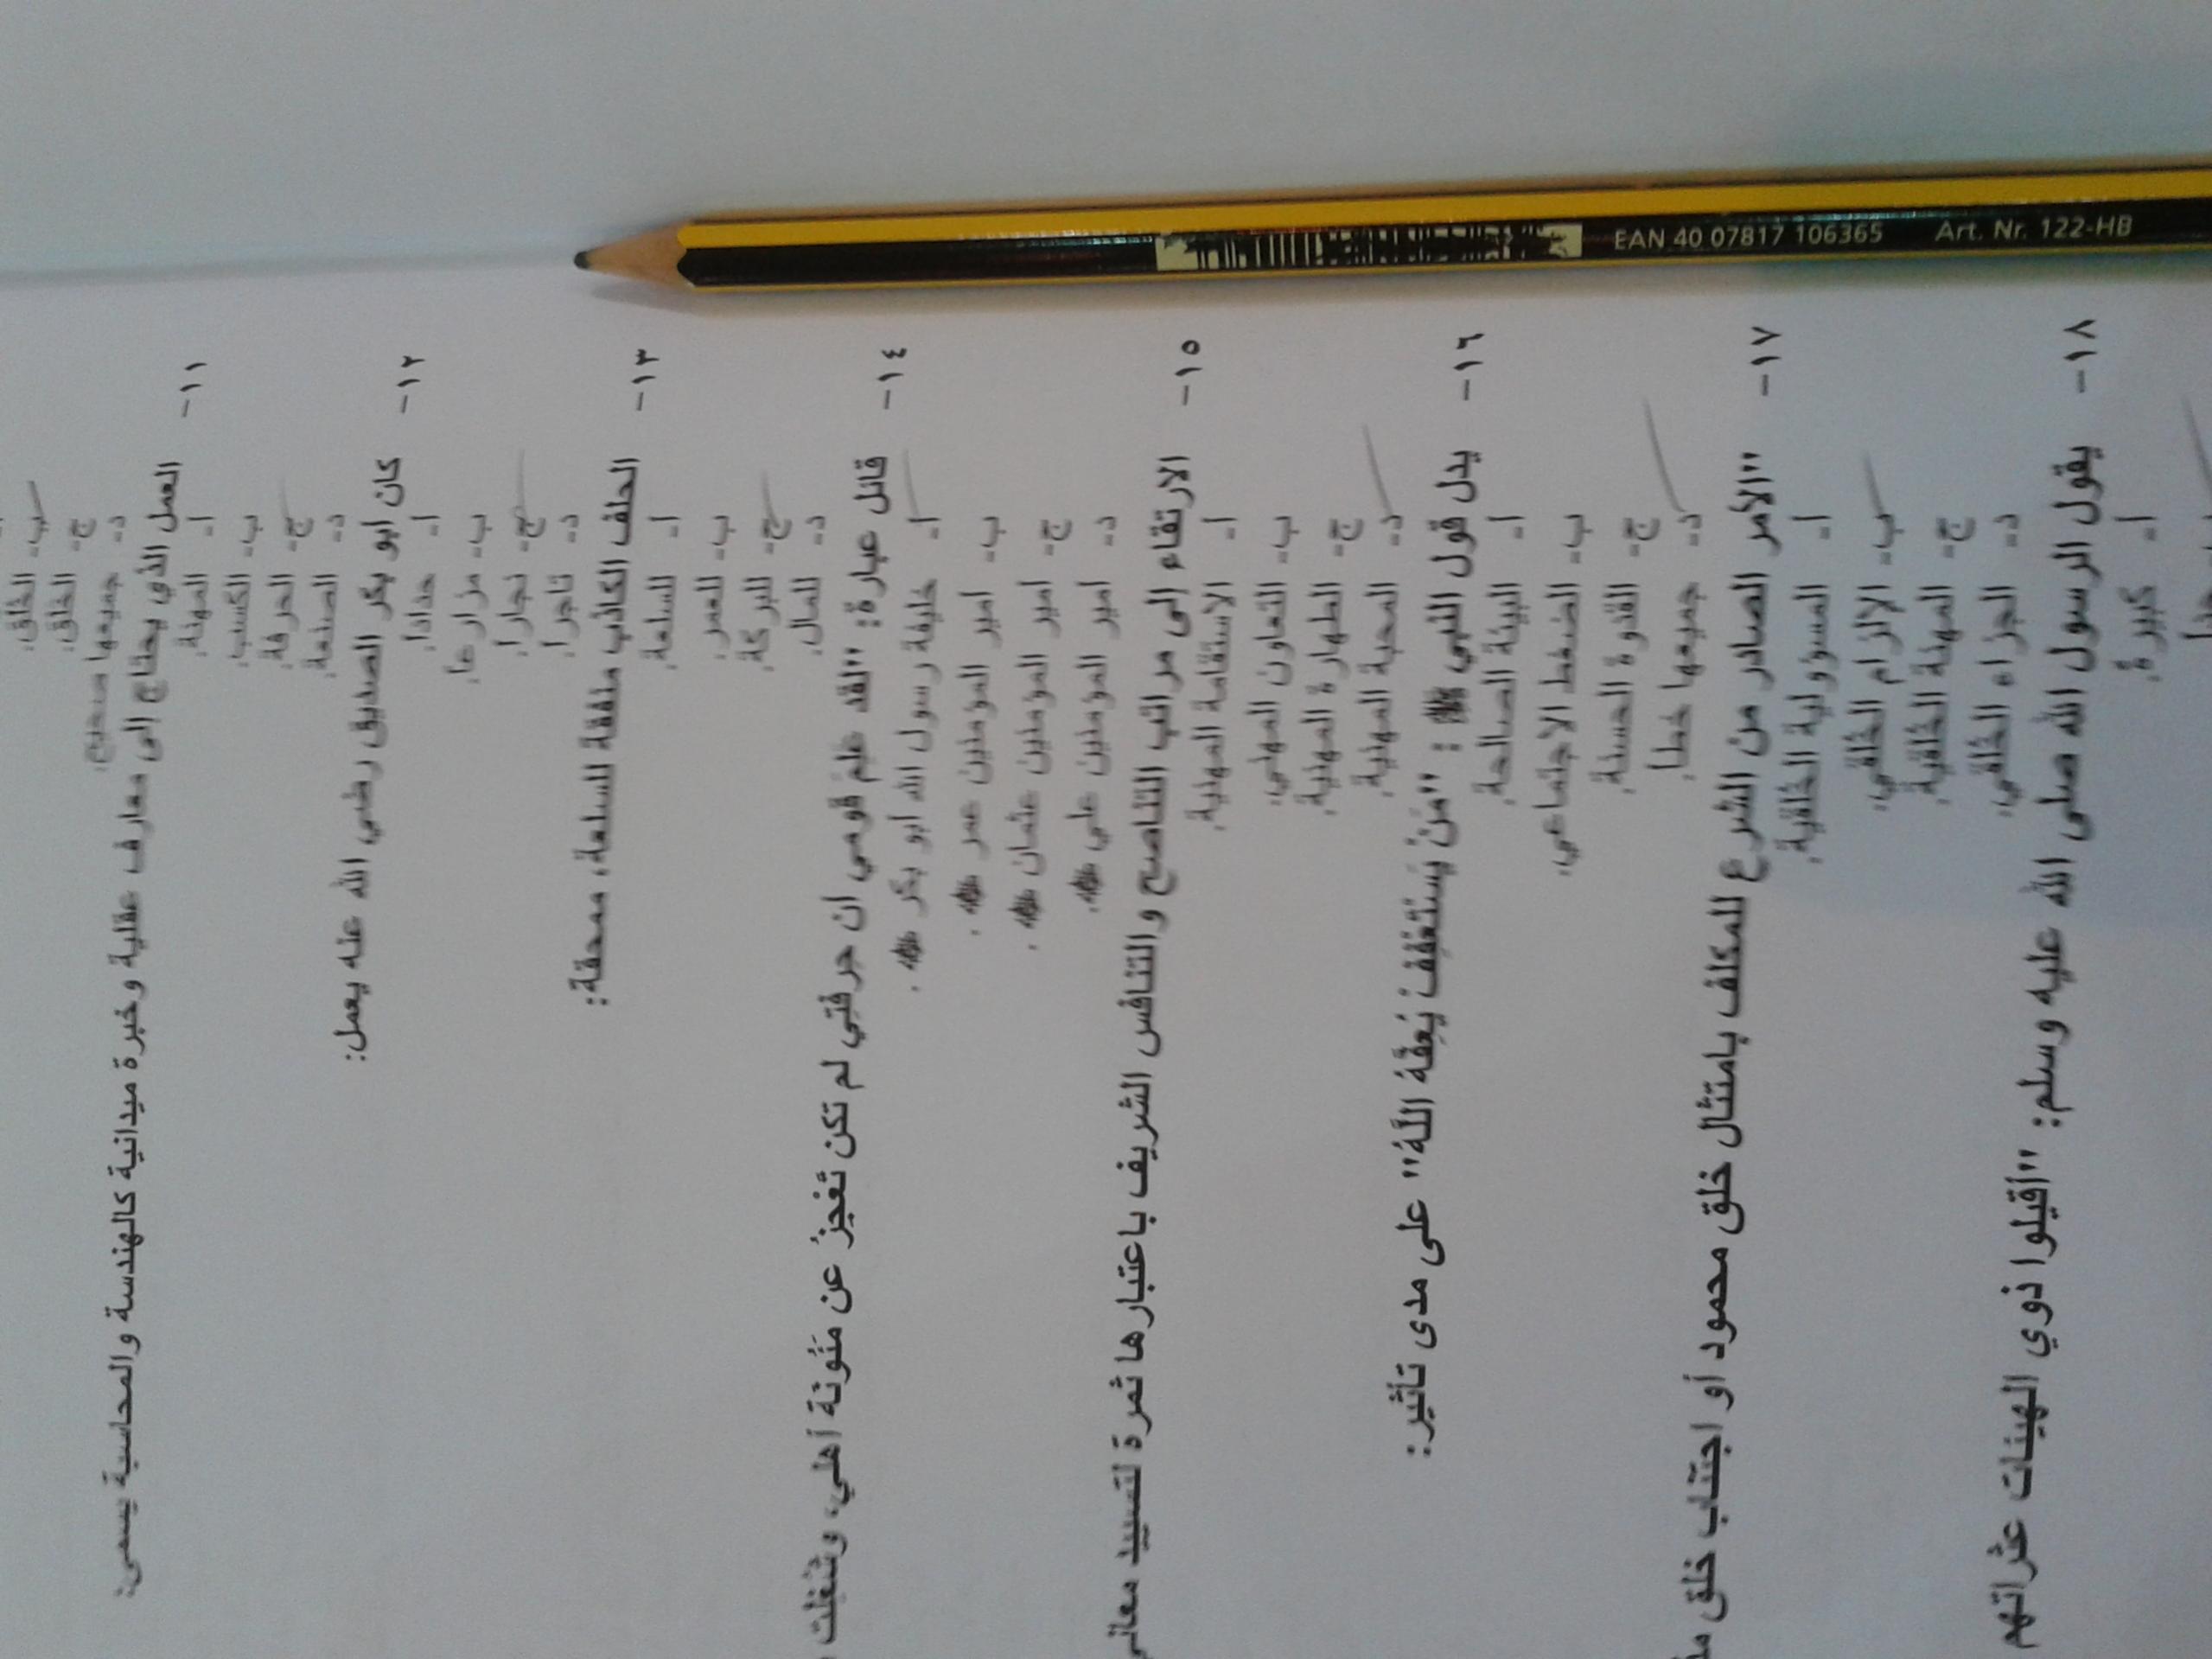 ب- الخلق.
ج- الخلق.
د- جميعها صحيح.
١١- العمل الذي يحتاج إلى معارف عقلية وخبرة ميدانية كالهندسة والمحاسبة يسمى:
أ- المهنة.
ب- الكسب.
ج- الحرفة.
د- الصنعة.
١٢- كان أبو بكر الصديق رضي الله عنه يعمل:
أ- حدادا.
ب- مزارعا.
ج- نجارا.
د- تاجرا.
١٣- الحلف الكاذب منفقة للسلعة، ممحقة:
أ- للسلعة.
ب- للعمر.
ج- للبركة.
د- للمال.
١٤- قائل عبارة: "لقد علم قومي أن حرفتي لم تكن تعجز عن مئونة أهلي، وشغلت
أ- خليفة رسول الله أبو بكر ﷺ.
ب- أمير المؤمنين عمر ﷺ.
ج- أمير المؤمنين عثمان ﷺ.
د- أمير المؤمنين علي ﷺ.
١٥- الارتقاء إلى مراتب التناصح والتنافس الشريف باعتبارها ثمرة لتسييد معاني
أ- الاستقامة المهنية.
ب- التعاون المهني.
ج- الطهارة المهنية.
د- المحبة المهنية.
١٦- يدل قول النبي ﷺ: "مَنْ يَسْتَعْفِفْ يُعِفَّهُ اللَّهُ" على مدى تأثير:
أ- البيئة الصالحة.
ب- الضغط الاجتماعي.
ج- القدوة الحسنة.
د- جميعها خطأ.
١٧- "الأمر الصادر من الشرع للمكلف بامتثال خلق محمود أو اجتناب خلق
أ- المسؤولية الخلقية.
ب- الالزام الخلقي.
ج- المهنة الخلقية.
د- الجزاء الخلقي.
١٨- يقول الرسول الله صلى الله عليه وسلم: "أقيلوا ذوي الهيئات عثراتهم
أ- كبيرة.